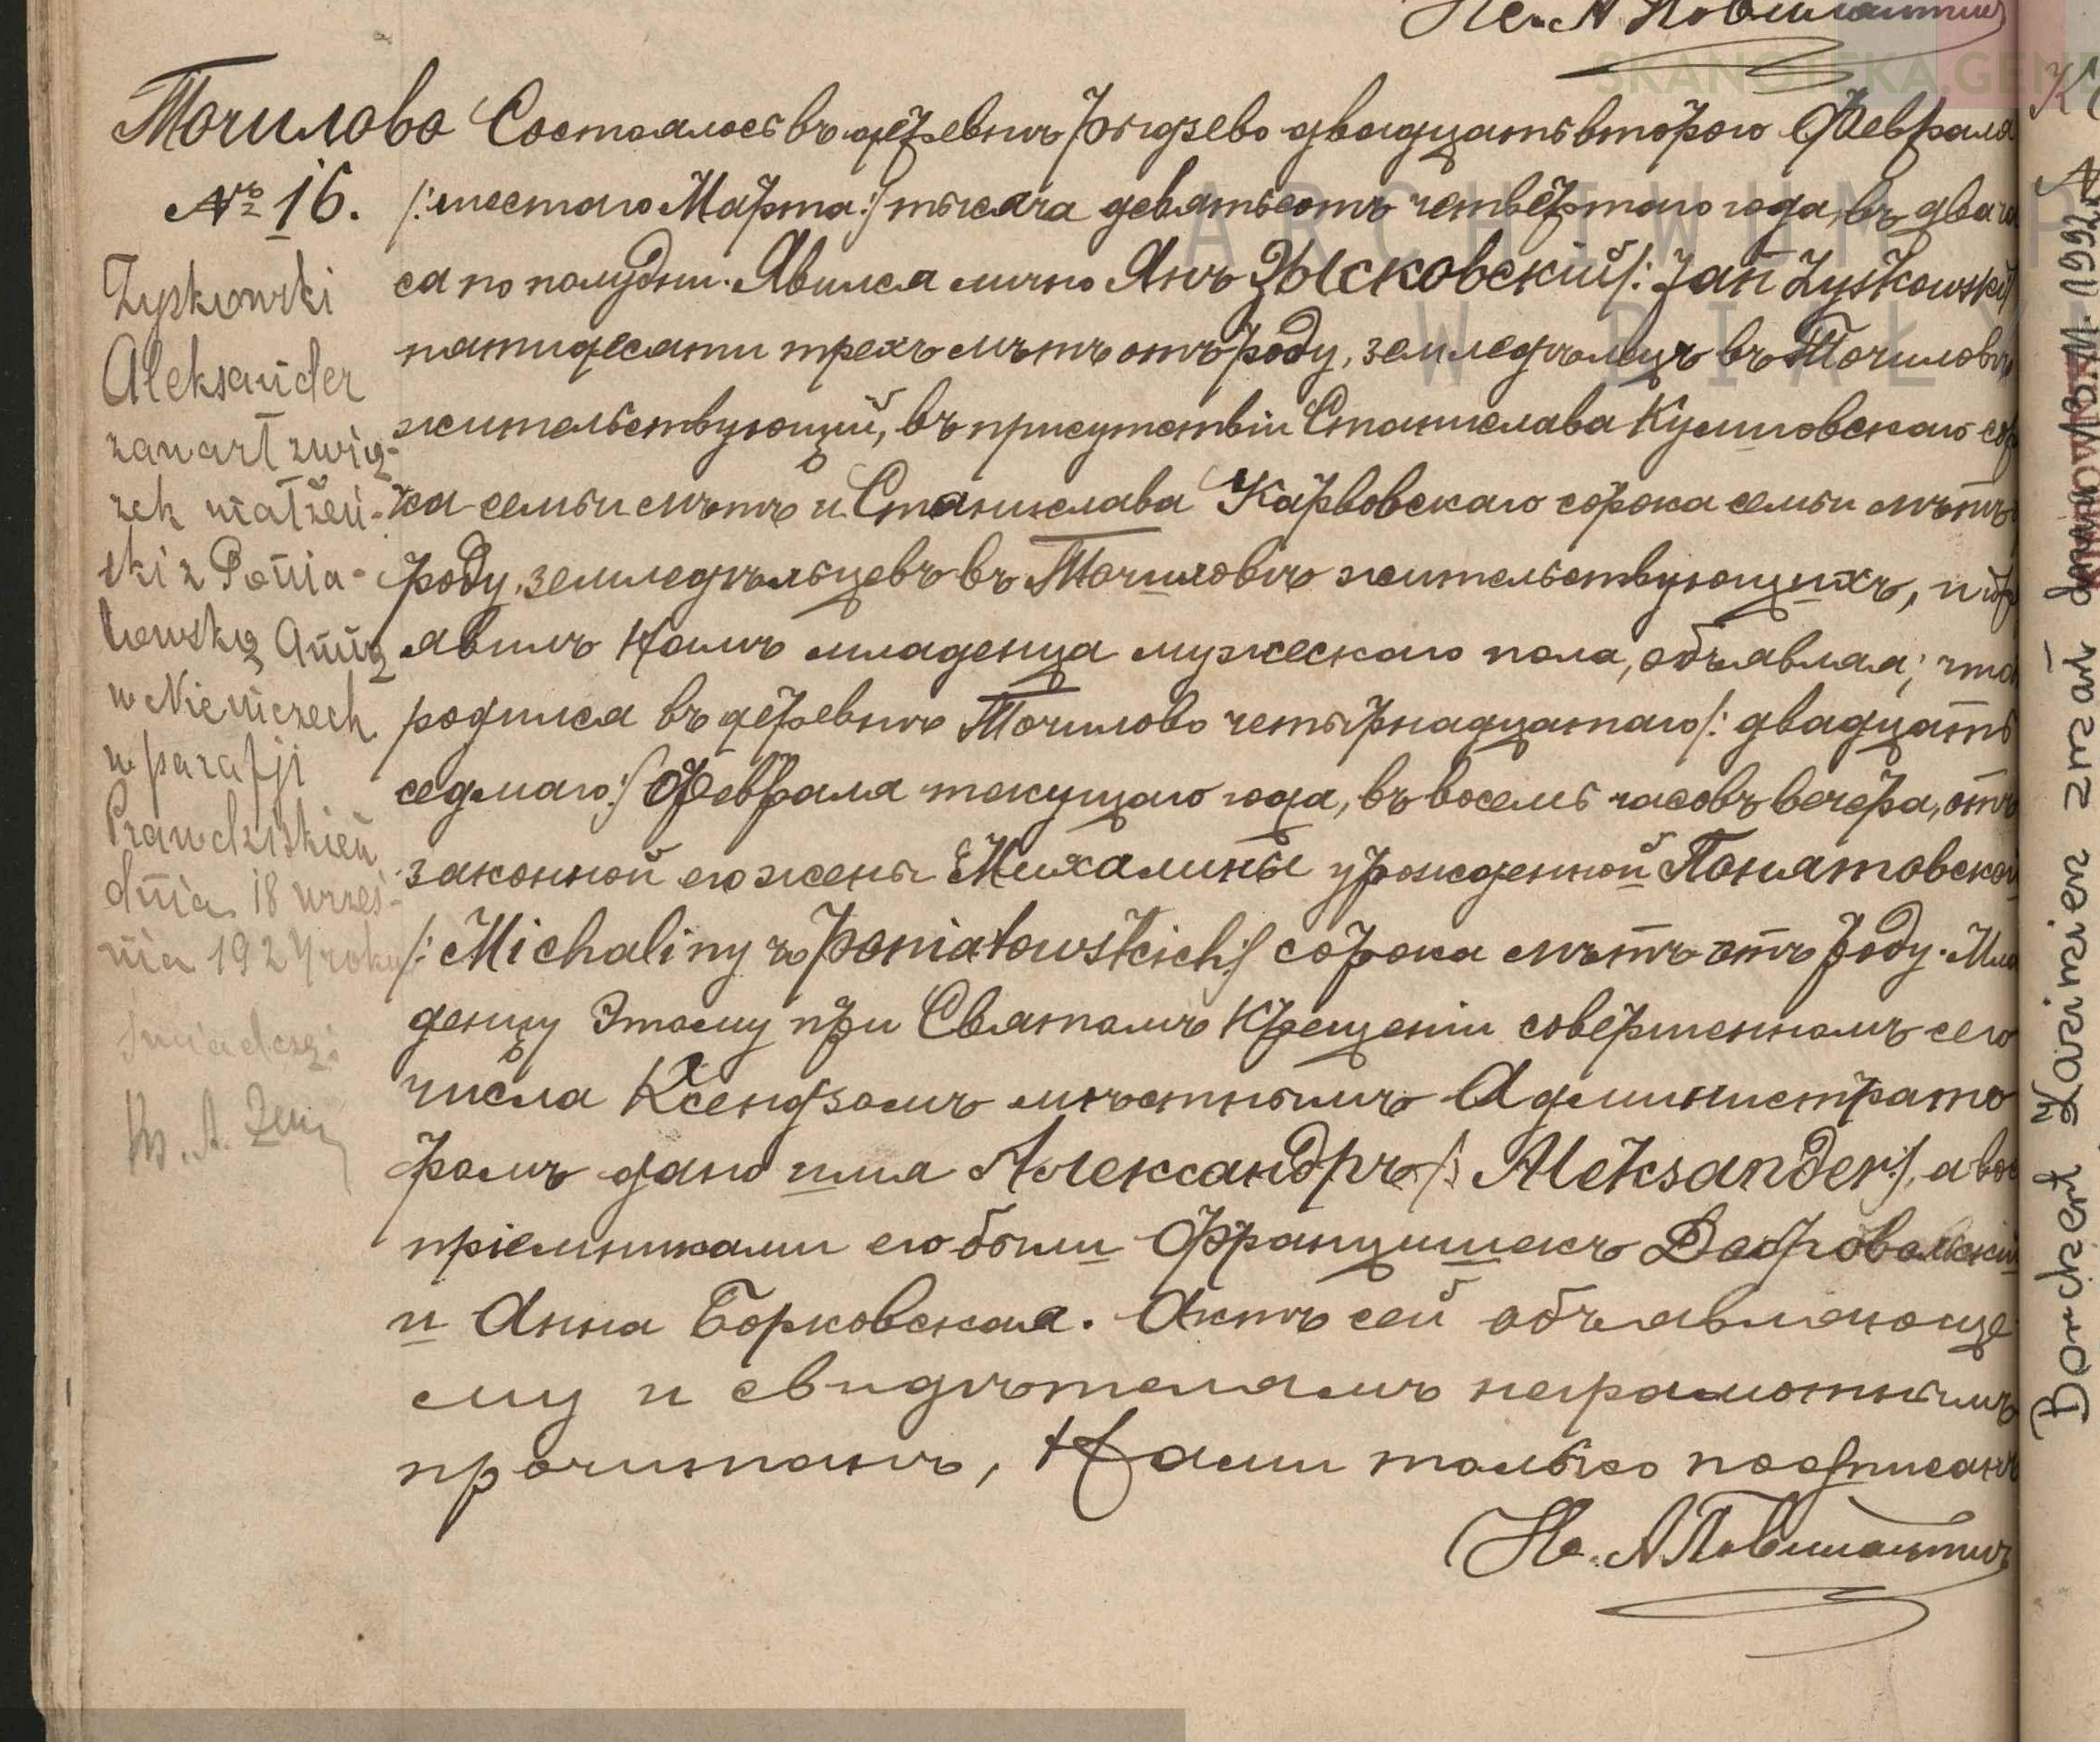 Точилово
№ 16.
Zyskowski
Aleksander
zawarł zwią-
zek małżeń-
ski z Ponia-
towską Anną
w Niemczech
w parafji
Prawdzisken
dnia 18 wrześ-
nia 1924 roku
Świadczy:
Ks. A.
Состоялось въ деревнѣ Рыдзево двадцать второго Февраля
/:шестаго Марта:/ тысяча девятьсотъ четвёртаго года, въ два ча
са по полудни. Явился лично Янъ Зысковскій /: Jan Zyskowski
пятидесяти трехъ лѣтъ отъ роду, земледѣлецъ въ Точиловѣ
жительствующій, въ присутствіи Станислава Кулиновскаго со
ка семи лѣтъ и Станислава Карвовскаго сорока семи лѣтъ
роду, земледѣльцевъ въ Точиловѣ жительствующихъ, и
явилъ Намъ младенца мужескаго пола, объявляя; что
родился въ деревнѣ Точилово четырнадцатаго /: двадцать
седмаго:/ Февраля текущаго года, въ восемь часовъ вечера, отъ
законной его жены Михалины урожденной Понятовской
/: Michaliny z Poniatowskich:/ сорока лѣтъ отъ роду. Мла
денцу Этому при Святомъ Крещеніи совершенномъ сего
числа Ксендзомъ мѣстнымъ Администрато
ромъ дано имя Александръ /: Aleksander:/, а вос
пріемниками его были Францишекъ Добровольскій
и Анна Борковская. Актъ сей объявляюще
му и свидѣтелямъ неграмотнымъ
прочитанъ, Нами только подписанъ
Кс. А
Borchert Kazimierz zmarł